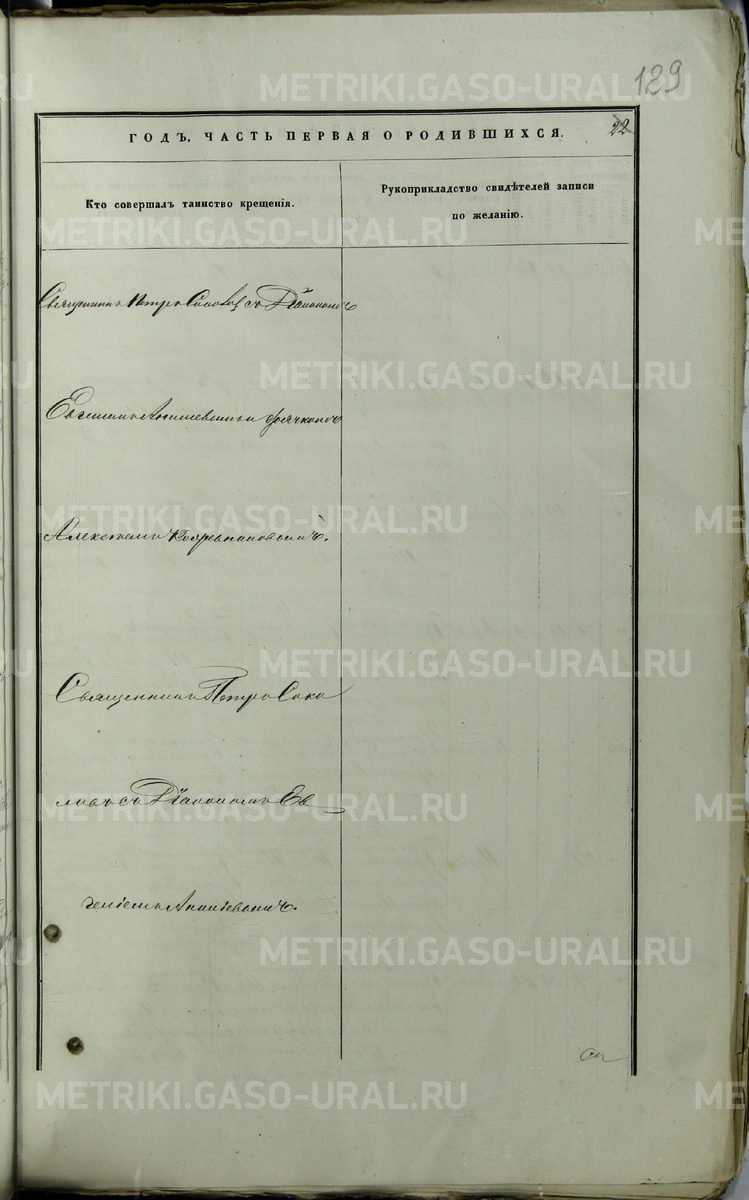 129
ГОДЪ, ЧАСТЬ ПЕРВАЯ О РОДИВШИХСЯ.
22
Кто совершалъ таинство крещенія.
Рукоприкладство свидѣтелей записи
по желанію.
Священникъ Петръ Соколовъ съ Діакономъ
Евгеніемъ Ананіевымъ и дьячкомъ
Алексѣемъ
Священникъ Петръ Соко
ловъ съ Діакономъ Ев
геніемъ Ананіевымъ.
METRIKI.GASO-URAL.RU